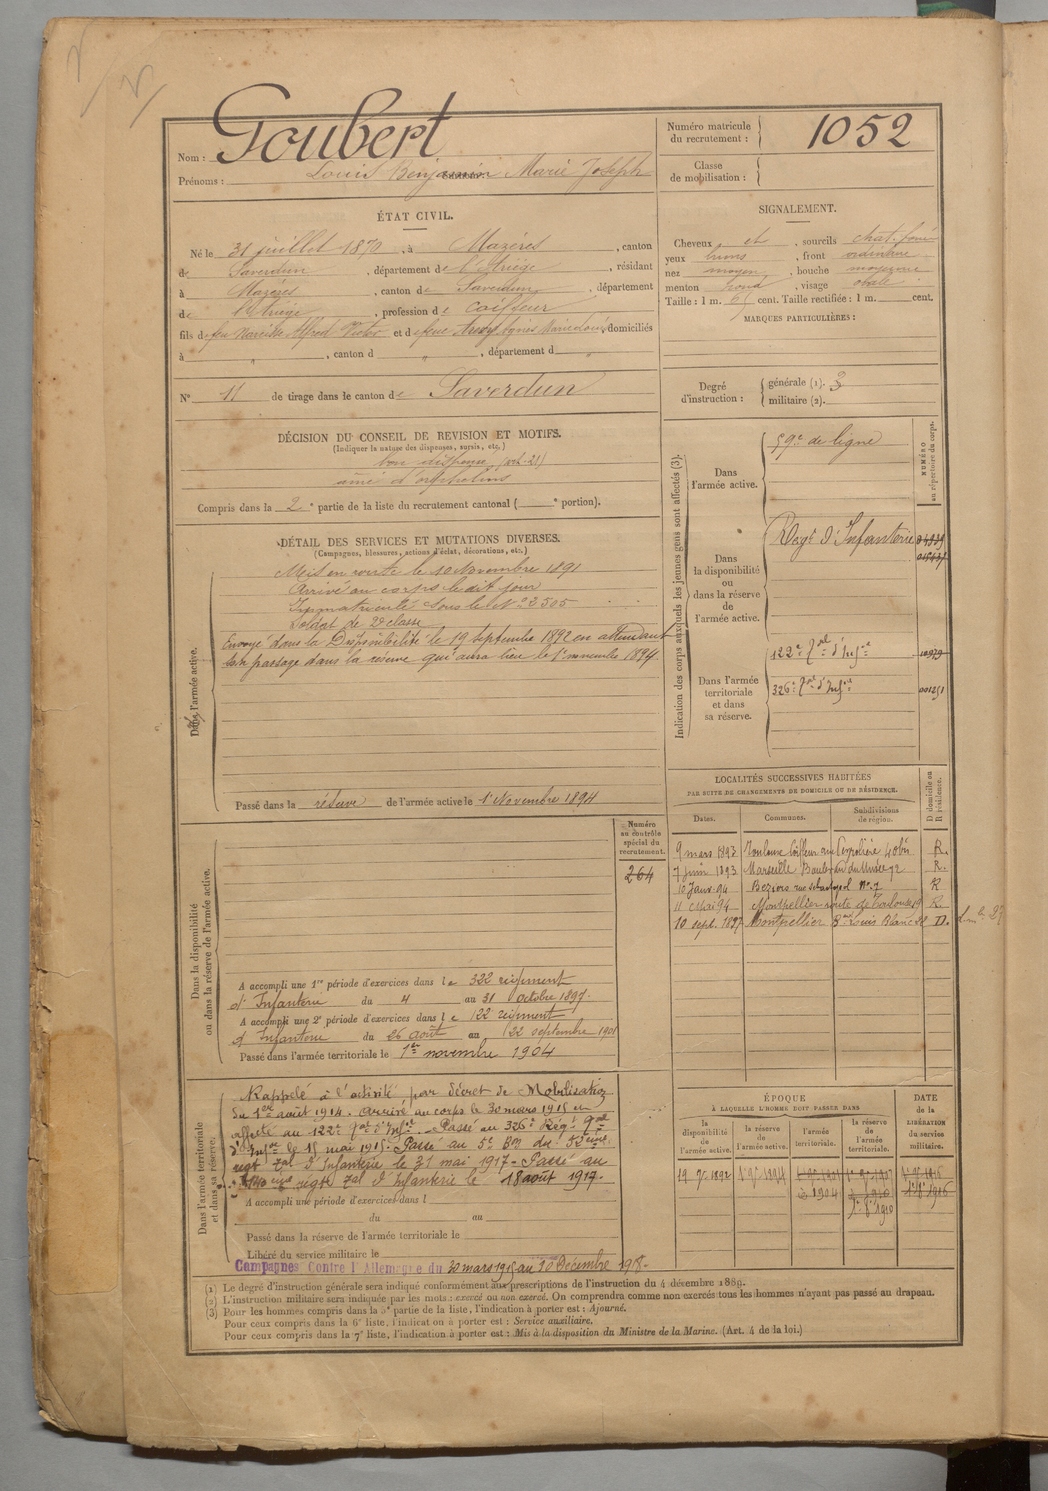 Nom : Goubert
Prénoms : Louis Benjamin Marie Joseph
Numéro matricule du recrutement : 1052
Classe de mobilisation :
ÉTAT CIVIL.
Né le 31 juillet 1870, à Mazères, canton
de Saverdun, département de l'Ariège, résidant
à Mazères, canton de Saverdun, département
de l'Ariège, profession de coiffeur
fils de feu Narcisse Alfred Victor et de feue Agnès Marie Louise, domiciliés
à " , canton d " , département d "
N° 11 de tirage dans le canton de Saverdun
SIGNALEMENT.
Cheveux et , sourcils chat. foncé
yeux bruns , front ordinaire
nez moyen , bouche moyenne
menton rond , visage ovale
Taille : 1 m. 65 cent. Taille rectifiée : 1 m. cent.
MARQUES PARTICULIÈRES :
Degré d'instruction : générale (1). 3
militaire (2).
DÉCISION DU CONSEIL DE REVISION ET MOTIFS.
(Indiquer la nature des dispenses, sursis, etc.)
bon dispensé (art. 21)
aîné d'orphelins
Compris dans la 2e partie de la liste du recrutement cantonal ( e portion).
DÉTAIL DES SERVICES ET MUTATIONS DIVERSES.
(Campagnes, blessures, actions d'éclat, décorations, etc.)
Dans l'armée active.
Mis en route le 10 Novembre 1891
Arrivé au corps le dit jour
Immatriculé sous le N° 2505
Soldat de 2e classe
Envoyé dans la Disponibilité le 19 septembre 1892 en attendant
son passage dans la réserve qui aura lieu le 1er novembre 1894
Passé dans la réserve de l'armée active le 1er Novembre 1894
Indication des corps auxquels les jeunes gens sont affectés (3).
NUMÉRO au répertoire du corps.
Dans l'armée active.
59e de ligne
Dans la disponibilité ou dans la réserve de l'armée active.
Régt d'Infanterie
Dans l'armée territoriale et dans sa réserve.
122e Ral d'Infie
326e Ral d'Infie
LOCALITÉS SUCCESSIVES HABITÉES
PAR SUITE DE CHANGEMENTS DE DOMICILE OU DE RÉSIDENCE.
Dates. Communes. Subdivisions de région. D domicile ou R résidence.
9 mars 1893 Toulouse Coiffeur rue 40 bis R.
7 juin 1893 Marseille Boulevard du Musée 72 R.
10 Janv. 94 Beziers rue N° 7 R
11 Mai 94 Montpellier route de Toulouse 19 R.
10 sept. 1897 Montpellier Bd Louis Blanc 28 D.
Dans la disponibilité ou dans la réserve de l'armée active.
Numéro au contrôle spécial du recrutement.
264
A accompli une 1re période d'exercices dans le 322 régiment
d'Infanterie du 4 au 31 octobre 1897.
A accompli une 2e période d'exercices dans le 122 régiment
d'Infanterie du 26 août au 22 septembre 1901
Passé dans l'armée territoriale le 1er novembre 1904
Dans l'armée territoriale et dans sa réserve.
Rappelé à l'activité par décret de Mobilisation
du 1er août 1914. Arrivé au corps le 30 mars 1915 et
affecté au 122e Ral d'Infie. Passé au 326e Régt Ral
d'Infie le 15 mai 1915. Passé au 5e Bon du 52eme
régt Tal d'Infanterie le 31 mai 1917 - Passé au
140 régt Tal d'Infanterie le 18 août 1917.
A accompli une période d'exercices dans l
du au
Passé dans la réserve de l'armée territoriale le
Libéré du service militaire le
Campagnes Contre l'Allemagne du 30 mars 1915 au 10 Décembre 1918.
ÉPOQUE
À LAQUELLE L'HOMME DOIT PASSER DANS
la disponibilité de l'armée active.
la réserve de l'armée active.
l'armée territoriale.
la réserve de l'armée territoriale.
DATE de la LIBÉRATION du service militaire.
19 7bre 1892 1er 9bre 1894
1904
(1) Le degré d'instruction générale sera indiqué conformément aux prescriptions de l'instruction du 4 décembre 1889.
(2) L'instruction militaire sera indiquée par les mots : exercé ou non exercé. On comprendra comme non exercés tous les hommes n'ayant pas passé au drapeau.
(3) Pour les hommes compris dans la 5e partie de la liste, l'indication à porter est : Ajourné.
Pour ceux compris dans la 6e liste, l'indication à porter est : Service auxiliaire.
Pour ceux compris dans la 7e liste, l'indication à porter est : Mis à la disposition du Ministre de la Marine. (Art. 4 de la loi.)